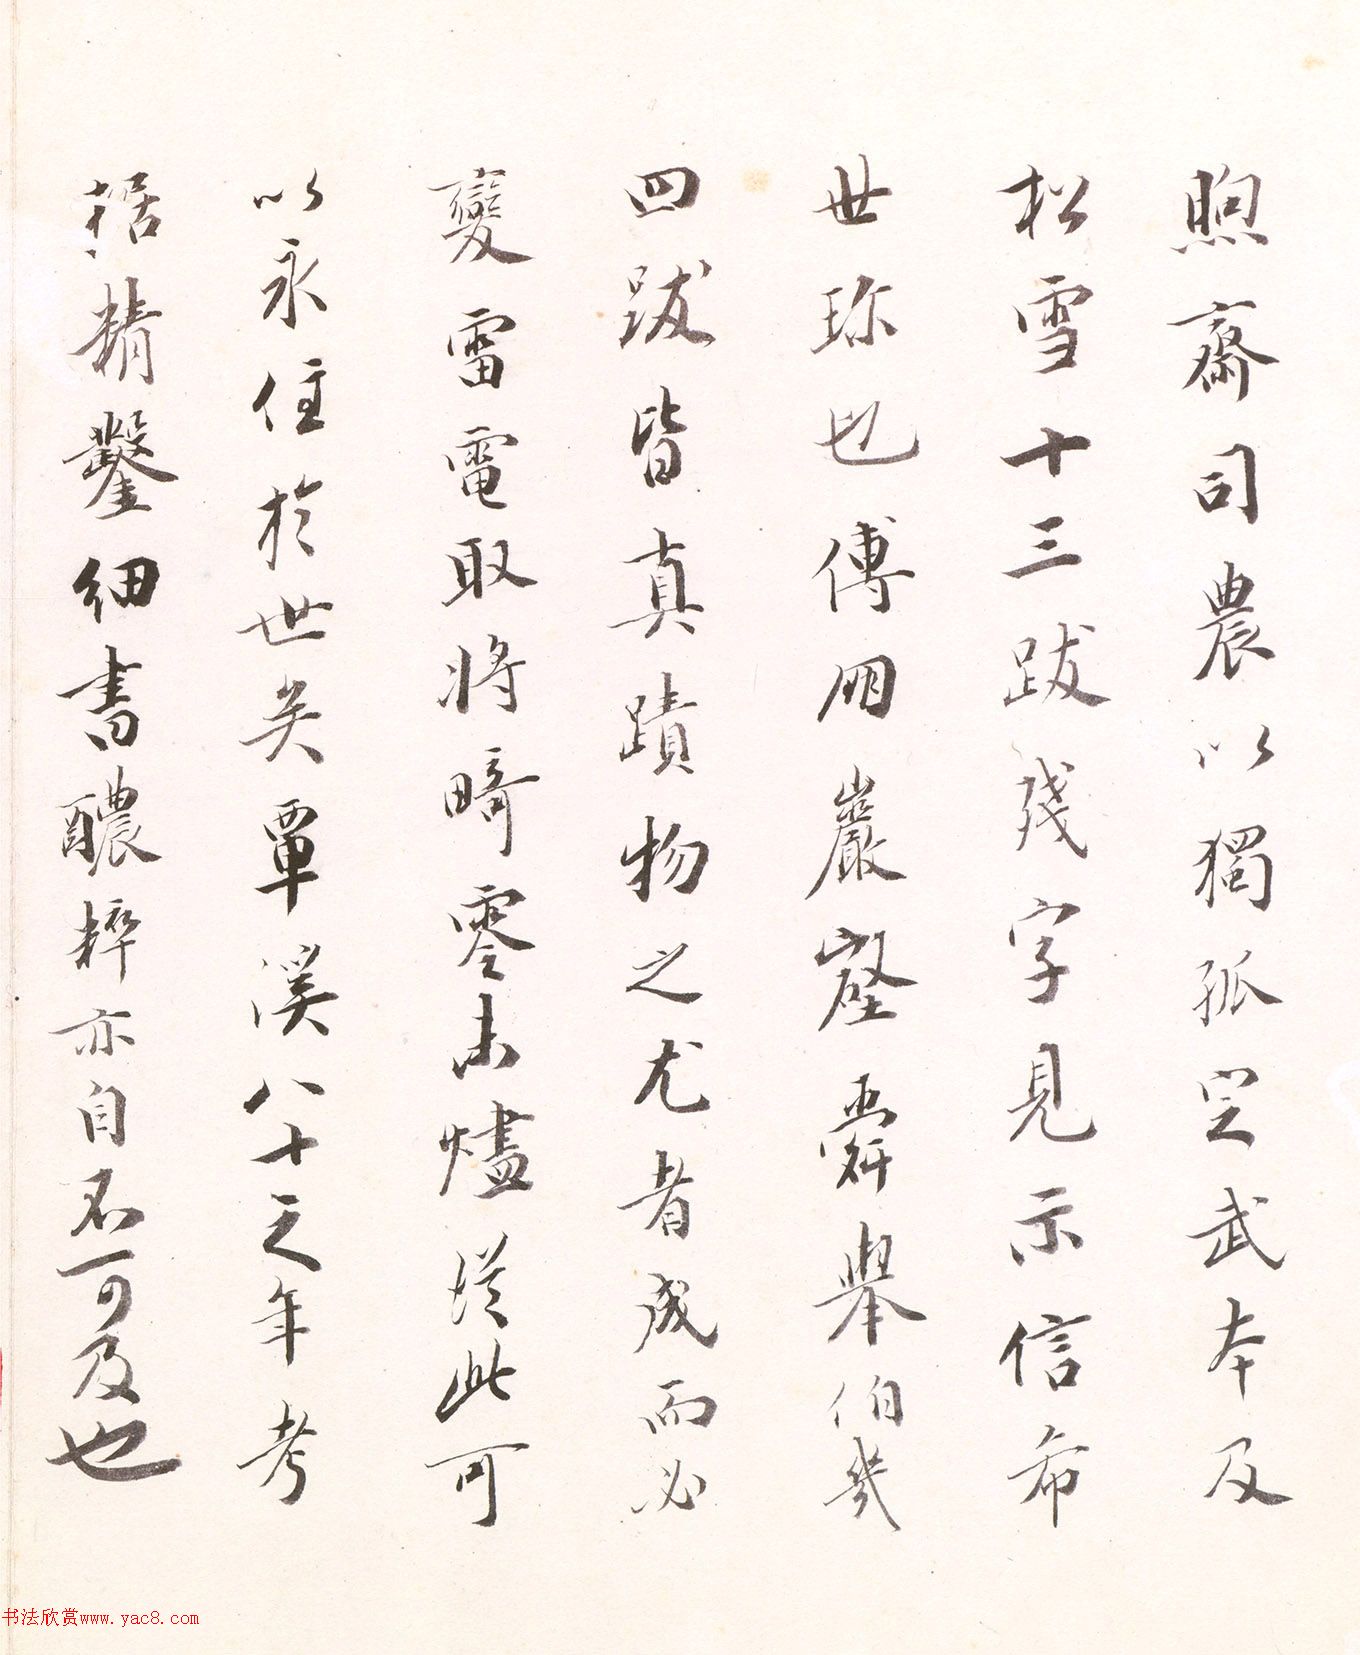 煦齋司農以獨孤定武本及
松雪十三跋殘字見示信希
世珎也傅朋巖壑舜舉伯幾
四跋皆真蹟物之尤者成而必
變雷電取將畸零未燼從此可
以永住於世矣覃溪八十之年考
据精鑿細書醲粹亦自不可及也
书法欣赏www.yac8.com